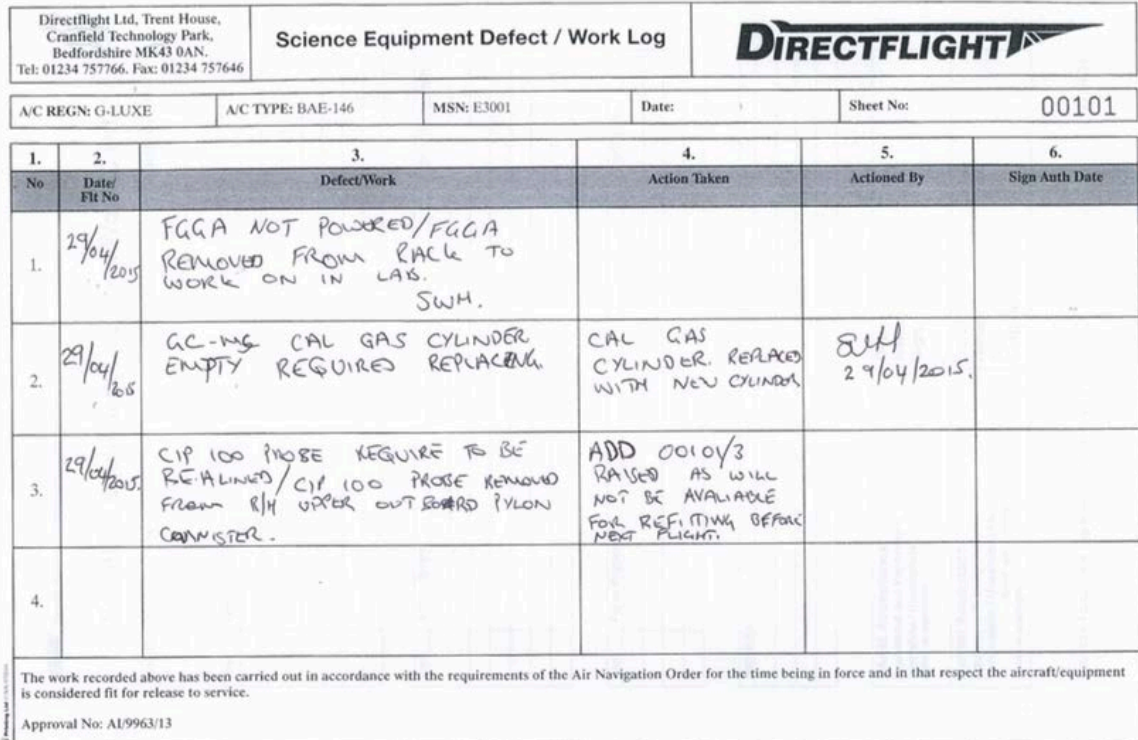 Directflight Ltd, Trent House,
Cranfield Technology Park,
Bedfordshire MK43 0AN.
Tel: 01234 757766. Fax: 01234 757646
Science Equipment Defect / Work Log
DIRECTFLIGHT
A/C REGN: G-LUXE
A/C TYPE: BAE-146
MSN: E3001
Date:
Sheet No:
00101
1.
2.
3.
4.
5.
6.
No
Date/
Flt No
Defect/Work
Action Taken
Actioned By
Sign Auth Date
1.
29/04/2015
FGGA NOT POWERED/FGGA
REMOVED FROM RACK TO
WORK ON IN LAB.
SWH.
2.
29/04/2015
GC-MS CAL GAS CYLINDER
EMPTY REQUIRES REPLACING.
CAL GAS
CYLINDER. REPLACED
WITH NEW CYLINDER
SWH
29/04/2015.
3.
29/04/2015.
CIP 100 PROBE REQUIRE TO BE
RE-ALINED/CIP 100 PROBE REMOVED
FROM R/H UPPER OUTBOARD PYLON
CANNISTER.
ADD 00101/3
RAISED AS WILL
NOT BE AVALIABLE
FOR REFITTING BEFORE
NEXT FLIGHT.
4.
The work recorded above has been carried out in accordance with the requirements of the Air Navigation Order for the time being in force and in that respect the aircraft/equipment
is considered fit for release to service.
Approval No: AI/9963/13